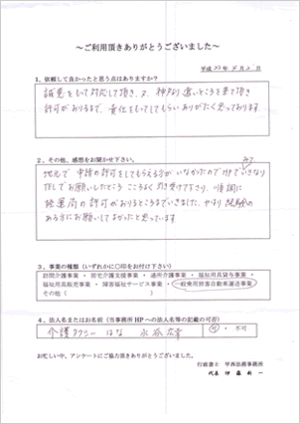 ～ご利用頂きありがとうございました～
平成22年4月2日
1、依頼して良かったと思う点はありますか?
誠意をもって対応して頂き、又、神戸より遠いところを来て頂き
許可がおりるまで、責任をもってしてもらいありがたく思っております。
2、その他、感想をお聞かせ下さい。
地元で申請の許可をしてもらえる方がいなかったので
でお願いしたところこころよく引き受けて下さり、順調に
陸運局の許可がおりるところまでいきました。やはり経験の
ある方にお願いしてよかったと思っています。
3、事業の種類(いずれかに〇印をお付け下さい)
訪問介護事業・居宅介護支援事業・通所介護事業・福祉用具貸与事業・
福祉用具販売事業・障害福祉サービス事業・一般乗用旅客自動車運送事業
その他( )
4、法人名またはお名前(当事務所HPへの法人名等の記載の可否)
介護タクシー はな
可・不可
お忙しい中、アンケートにご協力頂きありがとうございました。
行政書士 甲西法務事務所
代表 伊藤